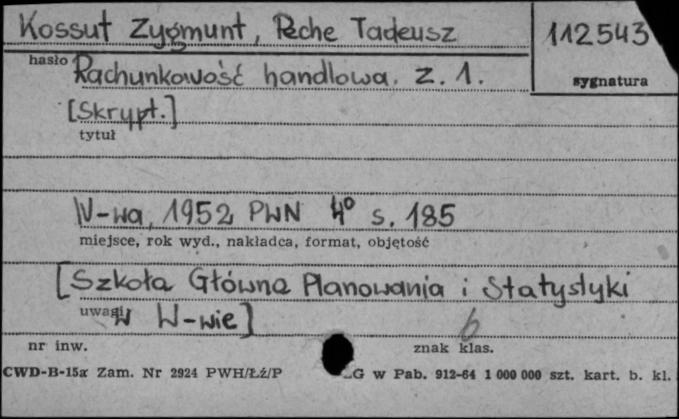 Kossut Zygmunt, Peche Tadeusz
112543
hasło Rachunkowość handlowa. Z. 1.
sygnatura
[Skrypt.]
tytuł
W-wa, 1952 PWN 4° s. 185
miejsce, rok wyd., nakładca, format, objętość
[Szkoła Główna Planowania i Statystyki
uwagi w W-wie]
b
nr inw.
znak klas.
CWD-B-15a Zam. Nr 2924 PWH/Łź/P G w Pab. 912-64 1 000 000 szt. kart. b. kl.